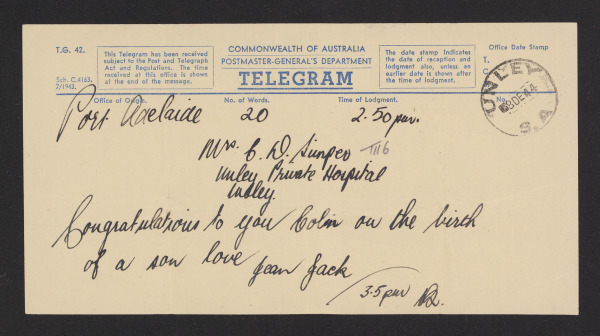 T.G. 42.
This Telegram has been received
subject to the Post and Telegraph
Act and Regulations. The time
received at this office is shown
at the end of the message.
Sch. C.4163.
7/1943.
COMMONWEALTH OF AUSTRALIA
POSTMASTER-GENERAL'S DEPARTMENT
TELEGRAM
The date stamp indicates
the date of reception and
lodgment also, unless an
earlier date is shown after
the time of lodgment.
Office Date Stamp
UNLEY
DE 44
S.A
Office of Origin.
No. of Words.
Time of Lodgment.
No.
Port Adelaide 20 2.50 pm.
Mrs. C. D. 7116
Unley Private Hospital
Unley.
Congratulations to you Colin on the birth
of a son love Jean Jack
3.5 pm